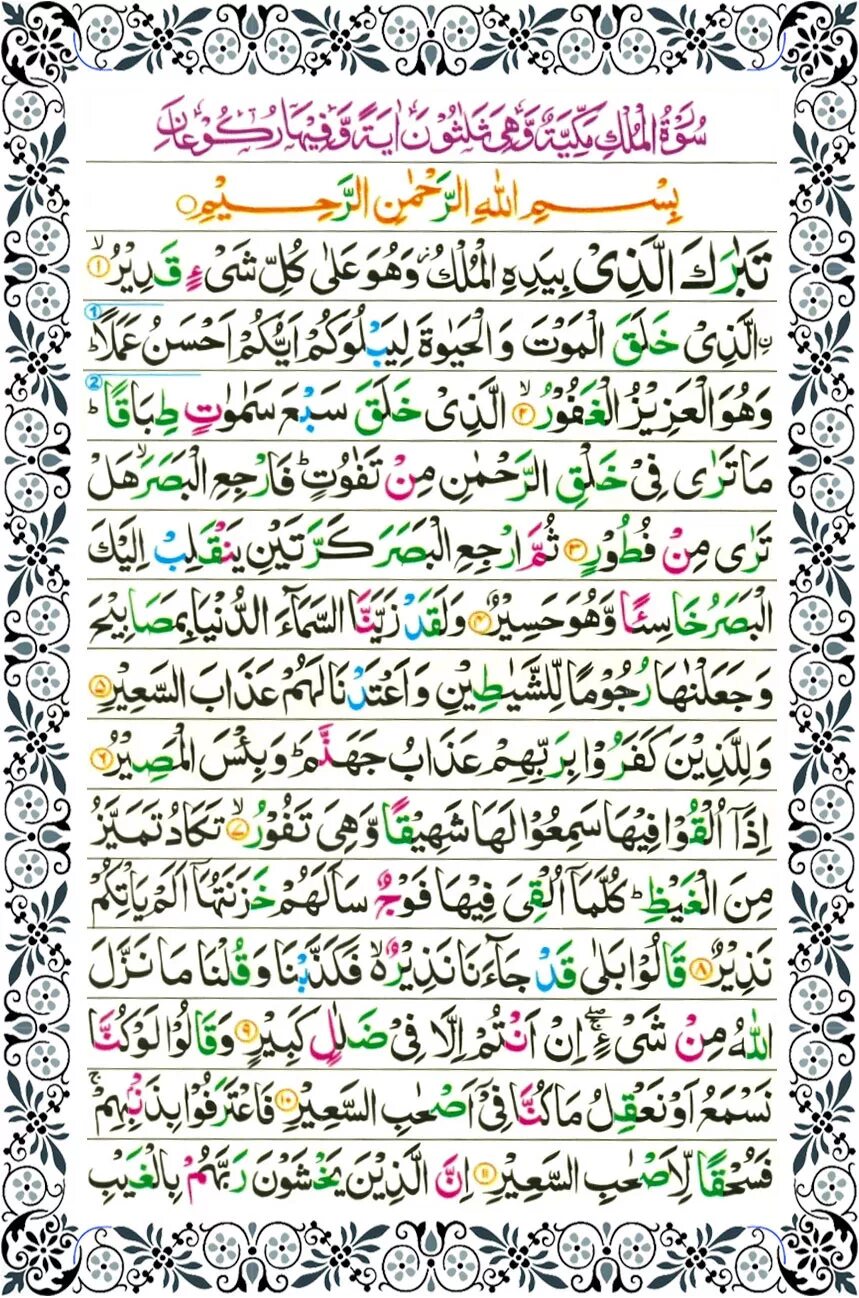 سُوْرَةُ الْمُلْكِ مَكِّيَّةٌ وَّهِيَ ثَلٰثُوْنَ اٰيَةً وَّفِيْهَا رُكُوْعَانِ
بِسْمِ اللهِ الرَّحْمٰنِ الرَّحِيْمِ ○
تَبٰرَكَ الَّذِیْ بِيَدِهِ الْمُلْكُ ز وَهُوَ عَلٰى كُلِّ شَیْءٍ قَدِيْرُ ۙ﴿۱﴾
ۨالَّذِیْ خَلَقَ الْمَوْتَ وَالْحَيٰوةَ لِيَبْلُوَكُمْ اَيُّكُمْ اَحْسَنُ عَمَلًا ؕ
وَهُوَ الْعَزِيْزُ الْغَفُوْرُ ۙ﴿۲﴾ الَّذِیْ خَلَقَ سَبْعَ سَمٰوٰتٍ طِبَاقًا ؕ
مَا تَرٰى فِیْ خَلْقِ الرَّحْمٰنِ مِنْ تَفٰوُتٍ ؕ فَارْجِعِ الْبَصَرَ ۙ هَلْ
تَرٰى مِنْ فُطُوْرٍ ﴿۳﴾ ثُمَّ ارْجِعِ الْبَصَرَ كَرَّتَيْنِ يَنْقَلِبْ اِلَيْكَ
الْبَصَرُ خَاسِئًا وَّهُوَ حَسِيْرٌ ﴿۴﴾ وَلَقَدْ زَيَّنَّا السَّمَآءَ الدُّنْيَا بِمَصَابِيْحَ
وَجَعَلْنٰهَا رُجُوْمًا لِّلشَّيٰطِيْنِ وَاَعْتَدْنَا لَهُمْ عَذَابَ السَّعِيْرِ ﴿۵﴾
وَلِلَّذِيْنَ كَفَرُوْا بِرَبِّهِمْ عَذَابُ جَهَنَّمَ ؕ وَبِئْسَ الْمَصِيْرُ ﴿۶﴾
اِذَآ اُلْقُوْا فِيْهَا سَمِعُوْا لَهَا شَهِيْقًا وَّهِیَ تَفُوْرُ ۙ﴿۷﴾ تَكَادُ تَمَيَّزُ
مِنَ الْغَيْظِ ؕ كُلَّمَآ اُلْقِیَ فِيْهَا فَوْجٌ سَاَلَهُمْ خَزَنَتُهَآ اَلَمْ يَاْتِكُمْ
نَذِيْرٌ ﴿۸﴾ قَالُوْا بَلٰى قَدْ جَآءَنَا نَذِيْرٌ ۙ۬ فَكَذَّبْنَا وَقُلْنَا مَا نَزَّلَ
اللهُ مِنْ شَیْءٍ ۚۖ اِنْ اَنْتُمْ اِلَّا فِیْ ضَلٰلٍ كَبِيْرٍ ﴿۹﴾ وَقَالُوْا لَوْ كُنَّا
نَسْمَعُ اَوْ نَعْقِلُ مَا كُنَّا فِیْٓ اَصْحٰبِ السَّعِيْرِ ﴿۱۰﴾ فَاعْتَرَفُوْا بِذَنْۢبِهِمْ ۚ
فَسُحْقًا لِّاَصْحٰبِ السَّعِيْرِ ﴿۱۱﴾ اِنَّ الَّذِيْنَ يَخْشَوْنَ رَبَّهُمْ بِالْغَيْبِ